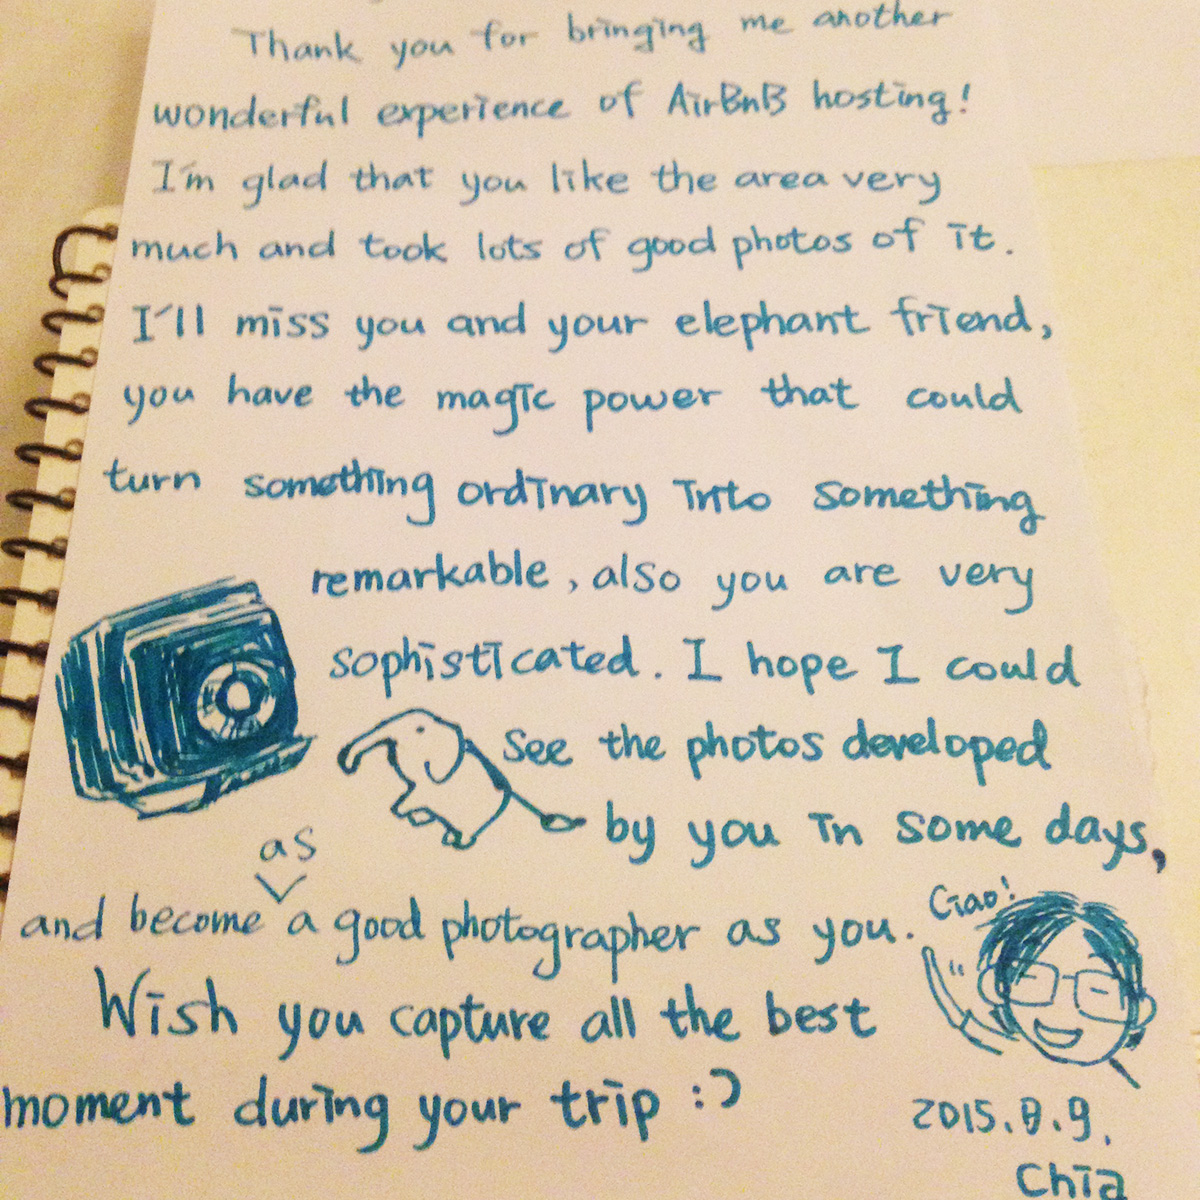 Thank you for bringing me another
wonderful experience of AirBnB hosting!
I'm glad that you like the area very
much and took lots of good photos of it.
I'll miss you and your elephant friend,
you have the magic power that could
turn something ordinary into something
remarkable, also you are very
sophisticated. I hope I could
see the photos developed
by you in some days,
as
and become a good photographer as you.
Ciao!
Wish you capture all the best
moment during your trip :)
2015.8.9.
Chia